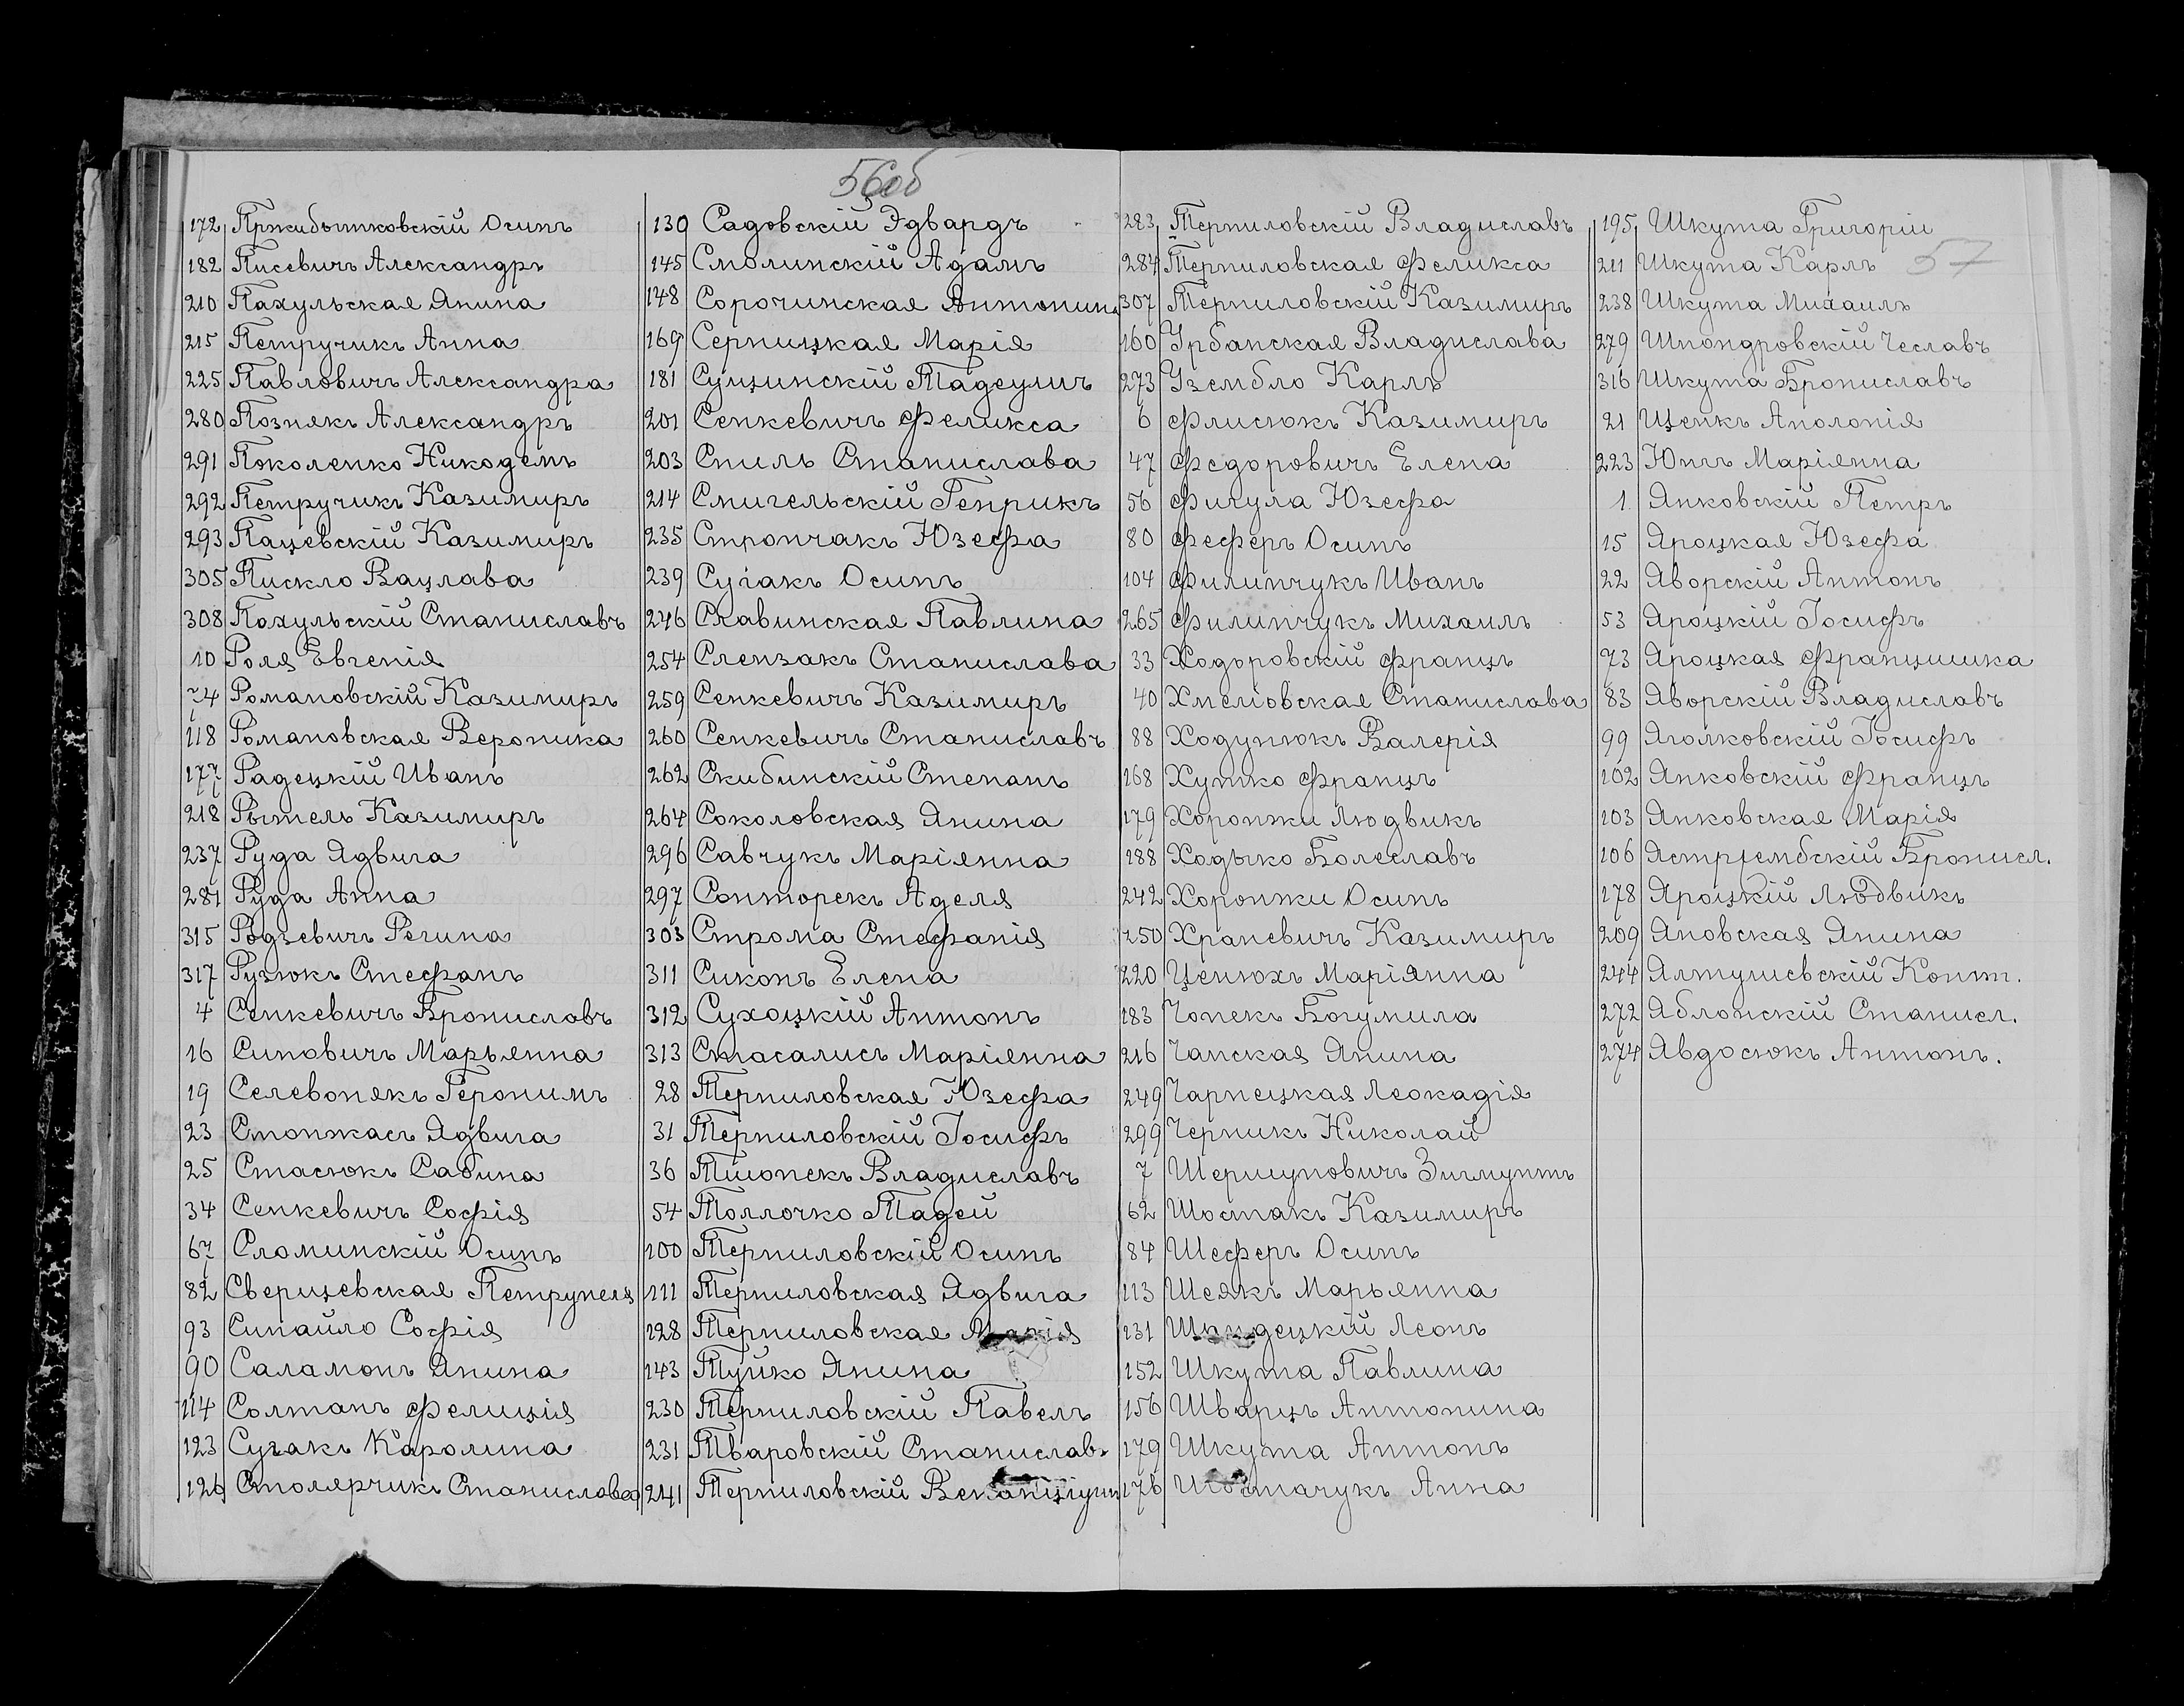 56об
172 Пржибытковскій Осипъ
182 Писевичъ Александръ
210 Пахульская Янина
215 Петручикъ Анна
225 Павловичъ Александра
280 Познякъ Александръ
291 Поколенко Никодемъ
292 Петручикъ Казимиръ
293 Пацевскій Казимиръ
305 Пискло Вацлава
308 Пахульскій Станиславъ
10 Роля Евгенія
74 Романовскій Казимиръ
118 Романовская Вероника
177 Радецкій Иванъ
218 Рытель Казимиръ
237 Руда Ядвига
281 Руда Анна
315 Родзевичъ Регина
317 Рузюкъ Стефанъ
4 Сенкевичъ Брониславъ
16 Синовичъ Марьянна
19 Селевонякъ Геронимъ
23 Стонжасъ Ядвига
25 Стасюкъ Сабина
34 Сенкевичъ Софія
67 Сломинскій Осипъ
82 Сверщевская Петрунеля
93 Сипайло Софія
90 Саламонъ Янина
114 Солтанъ Фелиція
123 Сугакъ Каролина
126 Столярчикъ Станислава
130 Садовскій Эдвардъ
145 Смолинскій Адамъ
148 Сорочинская Антонина
169 Серницкая Марія
181 Сущинскій Тадеушъ
201 Сенкевичъ Феликса
203 Спиль Станислава
214 Смигельскій Генрикъ
235 Стропчакъ Юзефа
239 Сугакъ Осипъ
246 Славинская Павлина
254 Слензакъ Станислава
259 Сенкевичъ Казимиръ
260 Сенкевичъ Станиславъ
262 Скибинскій Степанъ
264 Соколовская Янина
296 Савчукъ Маріянна
297 Сонторекъ Аделя
303 Строма Стефанія
311 Сиконъ Елена
312 Сухоцкій Антонъ
313 Стасалисъ Маріянна
28 Терпиловская Юзефа
31 Терпиловскій Іосифъ
36 Тшопекъ Владиславъ
54 Толлочко Тадей
100 Терпиловскій Осипъ
111 Терпиловская Ядвига
128 Терпиловская Марія
143 Туйко Янина
230 Терпиловскій Павелъ
231 Тваровскій Станиславъ
241 Терпиловскій
283 Терпиловскій Владиславъ
284 Терпиловская Феликса
307 Терпиловскій Казимиръ
160 Урбанская Владислава
273 Узембло Карлъ
6 Флисюкъ Казимиръ
47 Федоровичъ Елена
56 Фигула Юзефа
80 Феферъ Осипъ
104 Филипчукъ Иванъ
265 Филипчукъ Михаилъ
33 Ходоровскій Францъ
40 Хмеліовская Станислава
88 Ходунюкъ Валерія
168 Хутко Францъ
179 Хоронжи Людвикъ
188 Ходыко Болеславъ
242 Хоронжи Осипъ
250 Храневичъ Казимиръ
220 Ценюхъ Маріянна
183 Чопекъ Богумила
216 Чапская Янина
249 Чарнецкая Леокадія
299 Черникъ Николай
7 Шершуновичъ Зигмунтъ
62 Шостакъ Казимиръ
84 Шеферъ Осипъ
113 Шеякъ Марьянна
131 Леонъ
152 Шкута Павлина
156 Шварцъ Антонина
179 Шкута Антонъ
176 Шостачукъ Анна
195 Шкута Григорій
57
211 Шкута Карлъ
238 Шкута Михаилъ
279 Шпондровскій Чеславъ
316 Шкута Брониславъ
21 Щенкъ Аполонія
223 Юнгъ Маріянна
1 Янковскій Петръ
15 Яроцкая Юзефа
22 Яворскій Антонъ
53 Яроцкій Іосифъ
73 Яроцкая Францишка
83 Яворскій Владиславъ
99 Яголковскій Іосифъ
102 Янковскій Францъ
103 Янковская Марія
106 Ястржембскій Бронисл.
178 Яроцкій Людвикъ
209 Яновская Янина
244 Ялтушевскій Конт.
272 Яблонскій Станисл.
274 Явдосюкъ Антонъ.